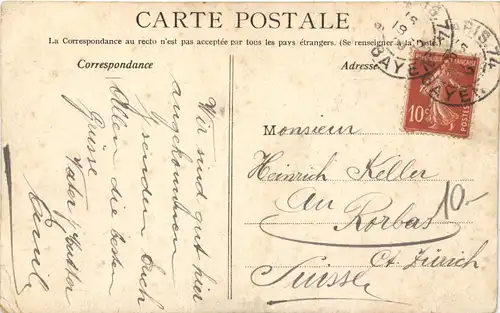 CARTE POSTALE
La Correspondance au recto n'est pas acceptée par tous les pays étrangers. (Se renseigner à la Poste)
Correspondance
Adresse
PARIS.74
BAYEN
RÉPUBLIQUE FRANÇAISE
10c
POSTES
Wir sind gut hier
angekommen
senden Euch
Allen die besten
Grüsse
Vater Mutter
Emil
Monsieur
Heinrich Keller
An
Rorbas
Ct. Zürich
Suisse
10-